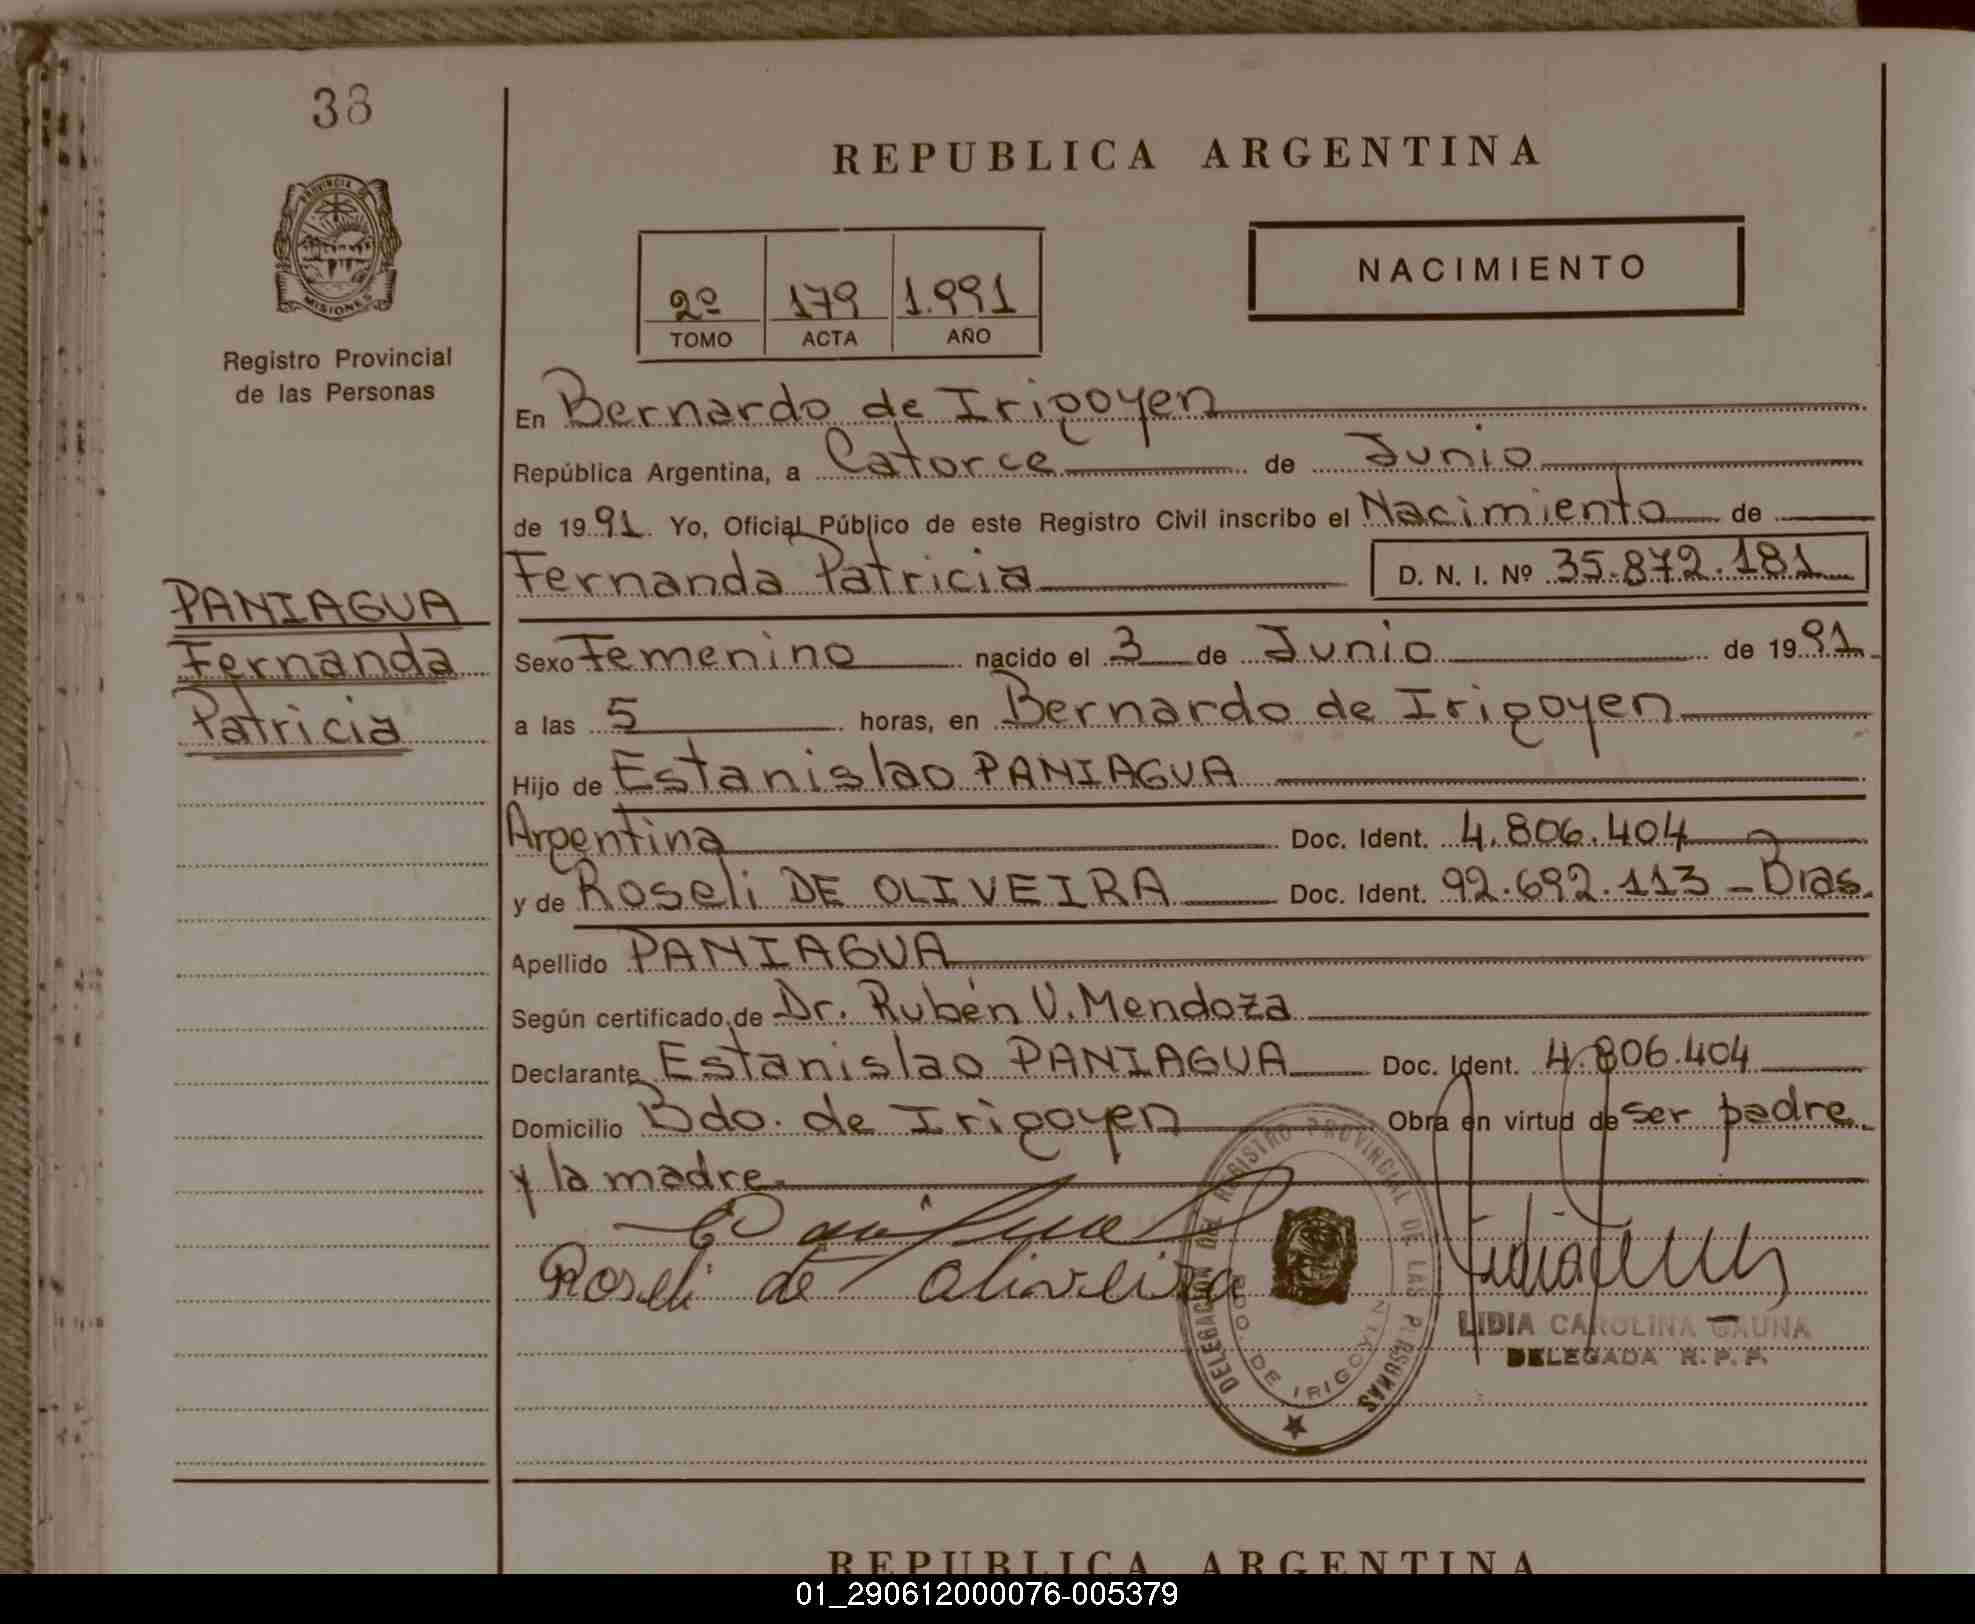 38
PROVINCIA DE
MISIONES
Registro Provincial
de las Personas
REPUBLICA ARGENTINA
NACIMIENTO
2º 179 1.991
TOMO ACTA AÑO
En Bernardo de Irigoyen
República Argentina, a Catorce de Junio
de 1991. Yo, Oficial Público de este Registro Civil inscribo el Nacimiento de
Fernanda Patricia D. N. I. Nº 35.872.181
PANIAGUA
Fernanda
Patricia
Sexo Femenino nacido el 3 de Junio de 1991
a las 5 horas, en Bernardo de Irigoyen
Hijo de Estanislao PANIAGUA
Argentina Doc. Ident. 4.806.404
y de Roseli DE OLIVEIRA Doc. Ident. 92.692.113 - Bras.
Apellido PANIAGUA
Según certificado de Dr. Rubén V. Mendoza
Declarante Estanislao PANIAGUA Doc. Ident. 4.806.404
Domicilio Bdo. de Irigoyen Obra en virtud de ser padre
y la madre.
Roseli de oliveira
DELEGACION DEL REGISTRO PROVINCIAL DE LAS PERSONAS
BDO. DE IRIGOYEN
LIDIA CAROLINA GAUNA
DELEGADA R. P. P.
REPUBLICA ARGENTINA
01_290612000076-005379